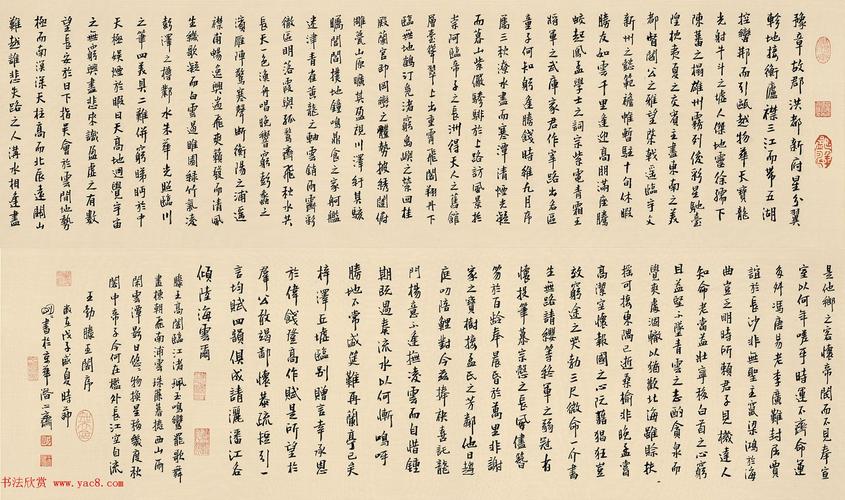 豫章故郡洪都新府星分翼
軫地接衡廬襟三江而帶五湖
控蠻荊而引甌越物華天寶龍
光射牛斗之墟人傑地靈徐孺下
陳蕃之榻雄州霧列俊彩星馳臺
隍枕夷夏之交賓主盡東南之美
都督閻公之雅望棨戟遙臨宇文
新州之懿範襜帷暫駐十旬休暇
勝友如雲千里逢迎高朋滿座騰
蛟起鳳孟學士之詞宗紫電青霜王
將軍之武庫家君作宰路出名區
童子何知躬逢勝餞時維九月序
屬三秋潦水盡而寒潭清煙光凝
而暮山紫儼驂騑於上路訪風景於
崇阿臨帝子之長洲得天人之舊館
層臺聳翠上出重霄飛閣翔丹下
臨無地鶴汀鳧渚窮島嶼之縈回桂
殿蘭宮即岡巒之體勢披繡闥俯
雕甍山原曠其盈視川澤紆其駭
矚閭閻撲地鐘鳴鼎食之家舸艦
迷津青雀黃龍之舳雲銷雨霽彩
徹區明落霞與孤鶩齊飛秋水共
長天一色漁舟唱晚響窮彭蠡之
濱雁陣驚寒聲斷衡陽之浦遙
襟甫暢逸興遄飛爽籟發而清風
生纖歌凝而白雲遏睢園綠竹氣凌
彭澤之樽鄴水朱華光照臨川
之筆四美具二難併窮睇眄於中
天極娛遊於暇日天高地迥覺宇宙
之無窮興盡悲來識盈虛之有數
望長安於日下指吳會於雲間地勢
極而南溟深天柱高而北辰遠關山
難越誰悲失路之人溝水相逢盡
是他鄉之客懷帝閽而不見奉宣
室以何年嗟乎時運不齊命運
多舛馮唐易老李廣難封屈賈
誼於長沙非無聖主竄梁鴻於海
曲豈乏明時所賴君子見機達人
知命老當益壯寧移白首之心窮
且益堅不墜青雲之志酌貪泉而
覺爽處涸轍以猶歡北海雖賒扶
搖可接東隅已逝桑榆非晚孟嘗
高潔空懷報國之心阮籍猖狂豈
效窮途之哭勃三尺微命一介書
生無路請纓等終軍之弱冠有
懷投筆慕宗愨之長風舍簪
笏於百齡奉晨昏於萬里非謝
家之寶樹接孟氏之芳鄰他日趨
庭叨陪鯉對今茲捧袂喜託龍
門楊意不逢撫凌雲而自惜鍾
期既遇奏流水以何慚嗚呼
勝地不常盛筵難再蘭亭已矣
梓澤丘墟臨別贈言幸承恩
於偉餞登高作賦是所望於
羣公敢竭鄙懷恭疏短引一
言均賦四韻俱成請灑潘江各
傾陸海雲爾
滕王高閣臨江渚珮玉鳴鸞罷歌舞
畫棟朝飛南浦雲珠簾暮捲西山雨
閒雲潭影日悠悠物換星移幾度秋
閣中帝子今何在檻外長江空自流
王勃滕王閣序
歲在戊子盛夏時節
書於京華
书法欣赏 www.yac8.com